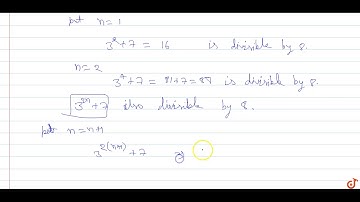 put n = 1
3² + 7 = 16 is divisible by 8.
n = 2
3⁴ + 7 = 81+7 = 88 is divisible by 8.
3²ⁿ + 7 also divisible by 8.
put n = n+1
3^2(n+1) + 7